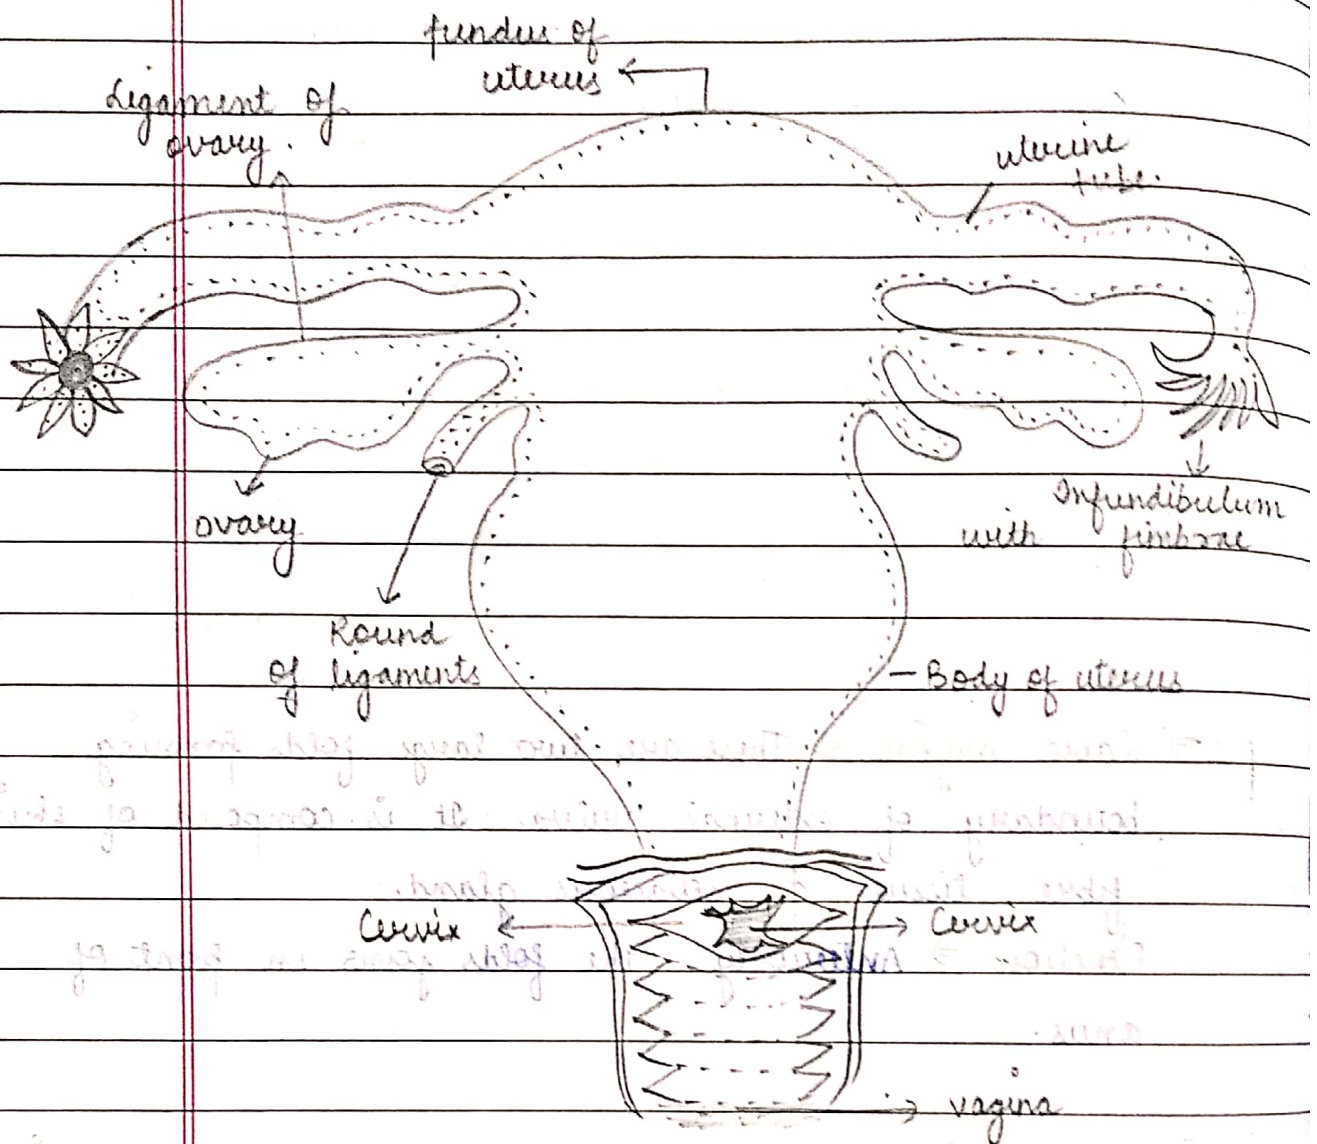 fundus of
uterus
Ligament of
ovary.
uterine
tube.
ovary
Infundibulum
with fimbrae
Round
of ligaments
Body of uterus
Cervix
Cervix
vagina